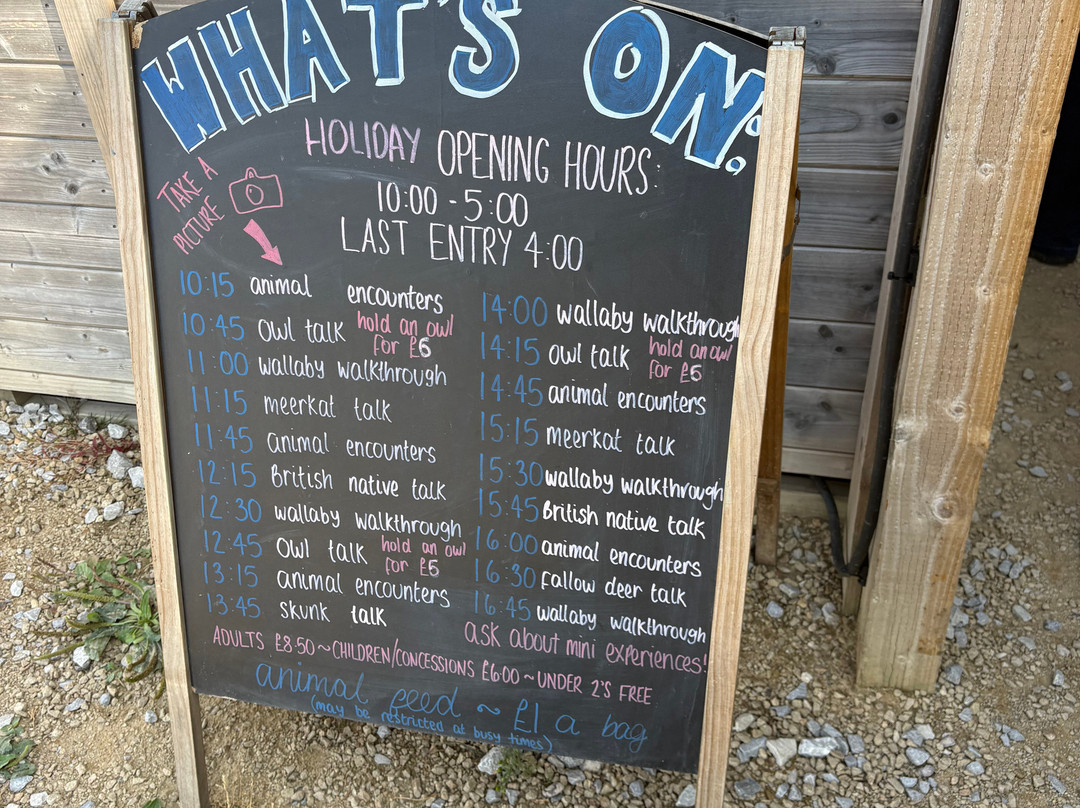 WHAT'S ON:
HOLIDAY OPENING HOURS:
10:00 - 5:00
LAST ENTRY 4:00
TAKE A
PICTURE
10:15 animal encounters
10:45 Owl talk hold an owl
for £6
11:00 wallaby walkthrough
11:15 meerkat talk
11:45 animal encounters
12:15 British native talk
12:30 wallaby walkthrough
12:45 Owl talk hold an owl
for £6
13:15 animal encounters
13:45 skunk talk
14:00 wallaby walkthrough
14:15 Owl talk hold an owl
for £6
14:45 animal encounters
15:15 meerkat talk
15:30 wallaby walkthrough
15:45 British native talk
16:00 animal encounters
16:30 fallow deer talk
16:45 wallaby walkthrough
ask about mini experiences!
ADULTS £8.50 ~ CHILDREN/CONCESSIONS £6.00 ~ UNDER 2'S FREE
animal feed ~ £1 a bag
(may be restricted at busy times)